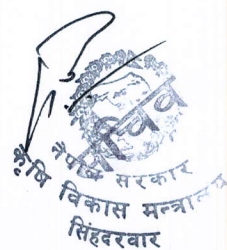 सचिव
नेपाल सरकार
कृषि विकास मन्त्रालय
सिंहदरवार